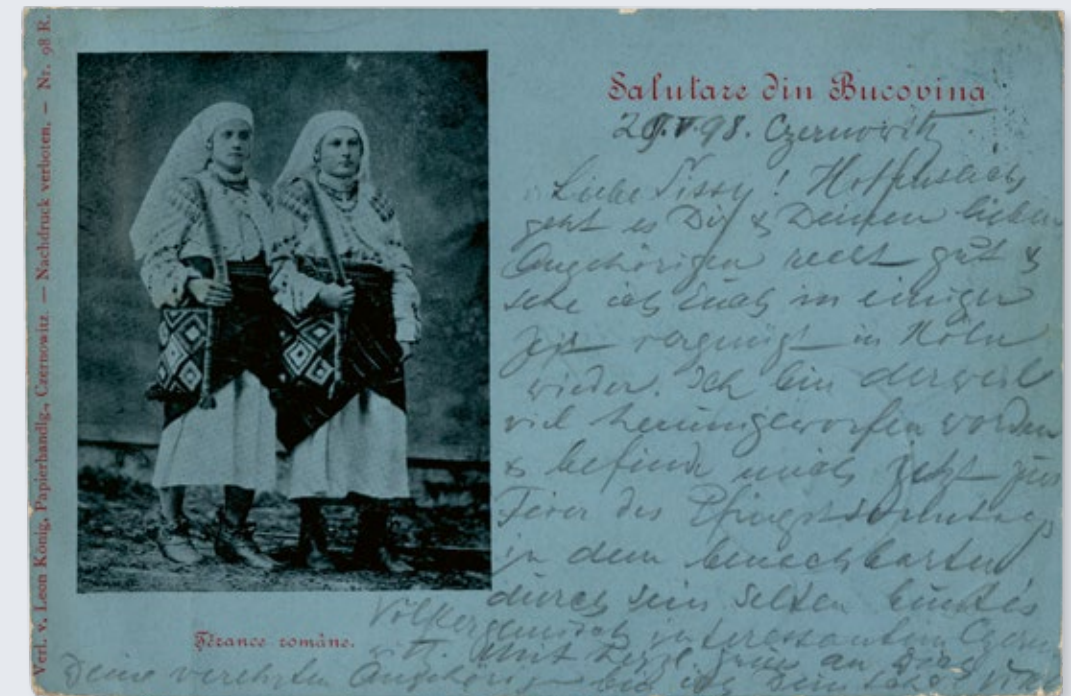 Verl. v. Leon König, Papierhandlg., Czernowitz. — Nachdruck verboten. — Nr. 98 R.
Salutare din Bucovina
29.V.98. Czernowitz
Liebe Sissy! Hoffentlich
geht es Dir & Deinen lieben
Angehörigen recht gut &
sehe ich Euch in einiger
Zeit vergnügt in Köln
wieder. Ich bin derweil
viel herumgeworfen worden
& befinde mich jetzt zur
Feier des Pfingstsonntags
in dem benachbarten
durch sein selten buntes
Völkergemisch interessanten Czerno
witz. Mit herzl. an
Deine verehrten Angehörig bin ich Dein
Țărance române.